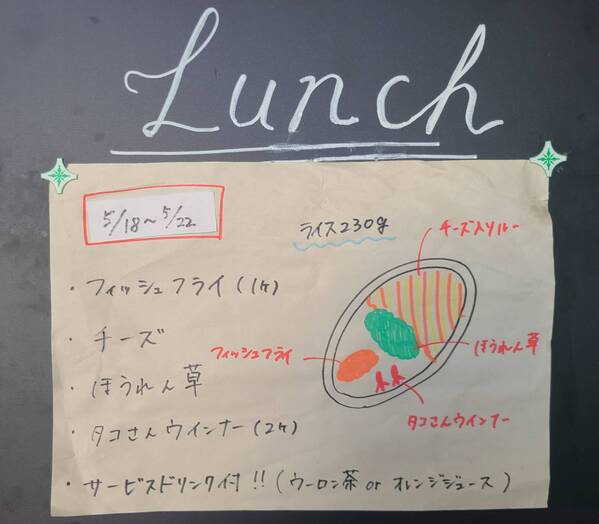 Lunch
5/18〜5/22
ライス230g
チーズ入りルー
・フィッシュフライ(1ヶ)
・チーズ
フィッシュフライ
ほうれん草
・ほうれん草
タコさんウインナー
・タコさんウインナー(2ヶ)
・サービスドリンク付!!(ウーロン茶 or オレンジジュース)